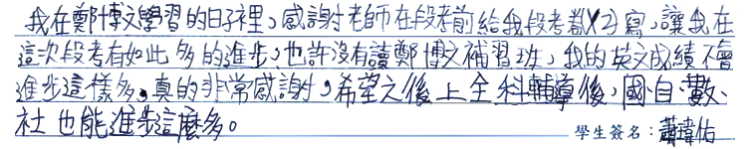 我在鄭博文學習的日子裡，感謝老師在段考前給我段考卷刈寫，讓我在
這次段考有如此多的進步，也許沒有讀鄭博文補習班，我的英文成績不會
進步這樣多。真的非常感謝。希望之後上全科輔導後，國、自、數、
社也能進步這麼多。
學生簽名：蕭瑋佑